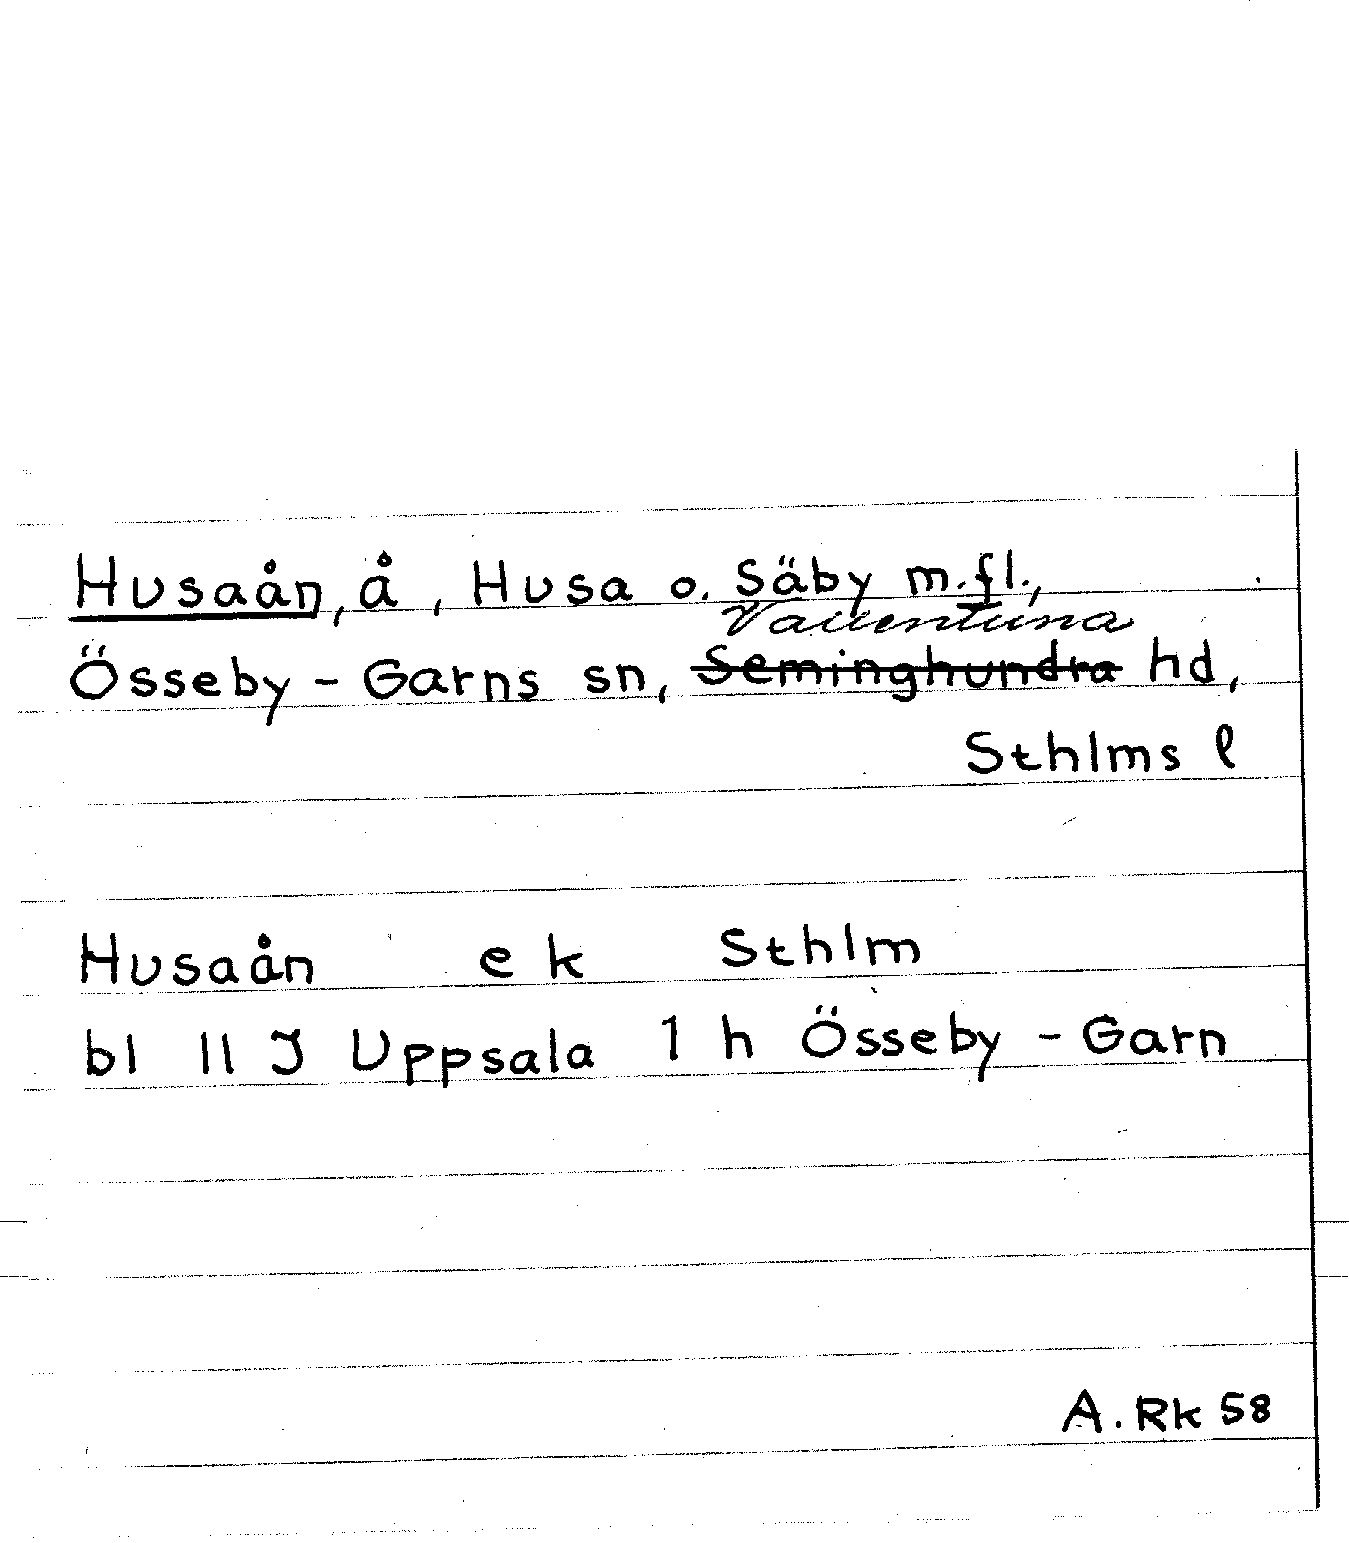 Husaån, å, Husa o. Säby m.fl.,
Vallentuna
Össeby-Garns sn, Seminghundra hd,
Sthlms l
Husaån e k Sthlm
bl 11 J Uppsala 1 h Össeby-Garn
A. Rk 58